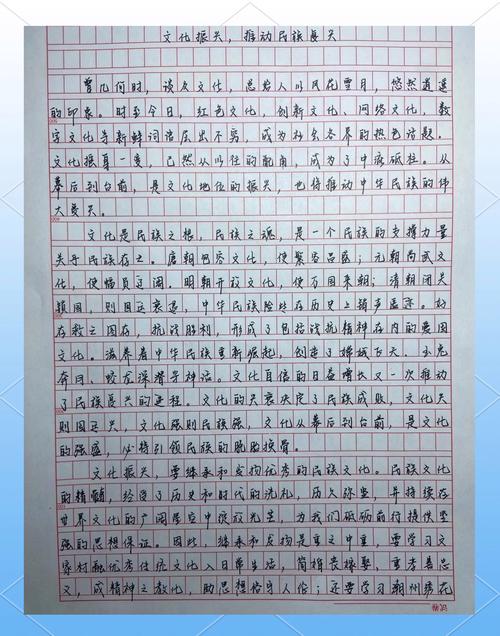 文化振兴，推动民族复兴
曾几何时，谈及文化，总给人以风花雪月，悠然逍遥
的印象。时至今日，红色文化，创新文化、网络文化，数
字文化等新鲜词语层出不穷，成为社会各界的热色话题。
文化摇身一变，已然从以往的配角，成为了中流砥柱。从
幕后到台前，是文化地位的振兴，也将推动中华民族的伟
大复兴。
文化是民族之根，民族之魂，是一个民族的支撑力量
关乎民族存亡。唐朝包容文化，使繁荣昌盛；元朝尚武文
化，使幅员辽阔。明朝开放文化，使万国来朝；清朝闭关
锁国，则国运衰退，中华民族险些在历史上销声匿迹。好
在救亡图存，抗战胜利，形成了包括抗战精神在内的爱国
文化。滋养着中华民族重新崛起，创造了嫦娥飞天、玉兔
奔月、蛟龙深潜等神话。文化自信的日益增长又一次推动
了民族复兴的进程。文化的兴衰决定了民族成败，文化兴
则国运兴，文化强则民族强，文化从幕后到台前，是文化
的强盛，必将引领民族的脱胎换骨。
文化振兴，要继承和发扬优秀的民族文化。民族文化
的精髓，经受了历史和时代的洗礼，历久弥坚，并持续在
世界文化的广阔星空中绽放光芒，为我们砥砺前行提供坚
强的思想保证。因此，继承和发扬是重中之重，要学习文
家村融优秀传统文化入日常生活，简择丧接娶，重孝善忠
义，成精神之教化，助思想俗守人伦；还要学习潮州绣花